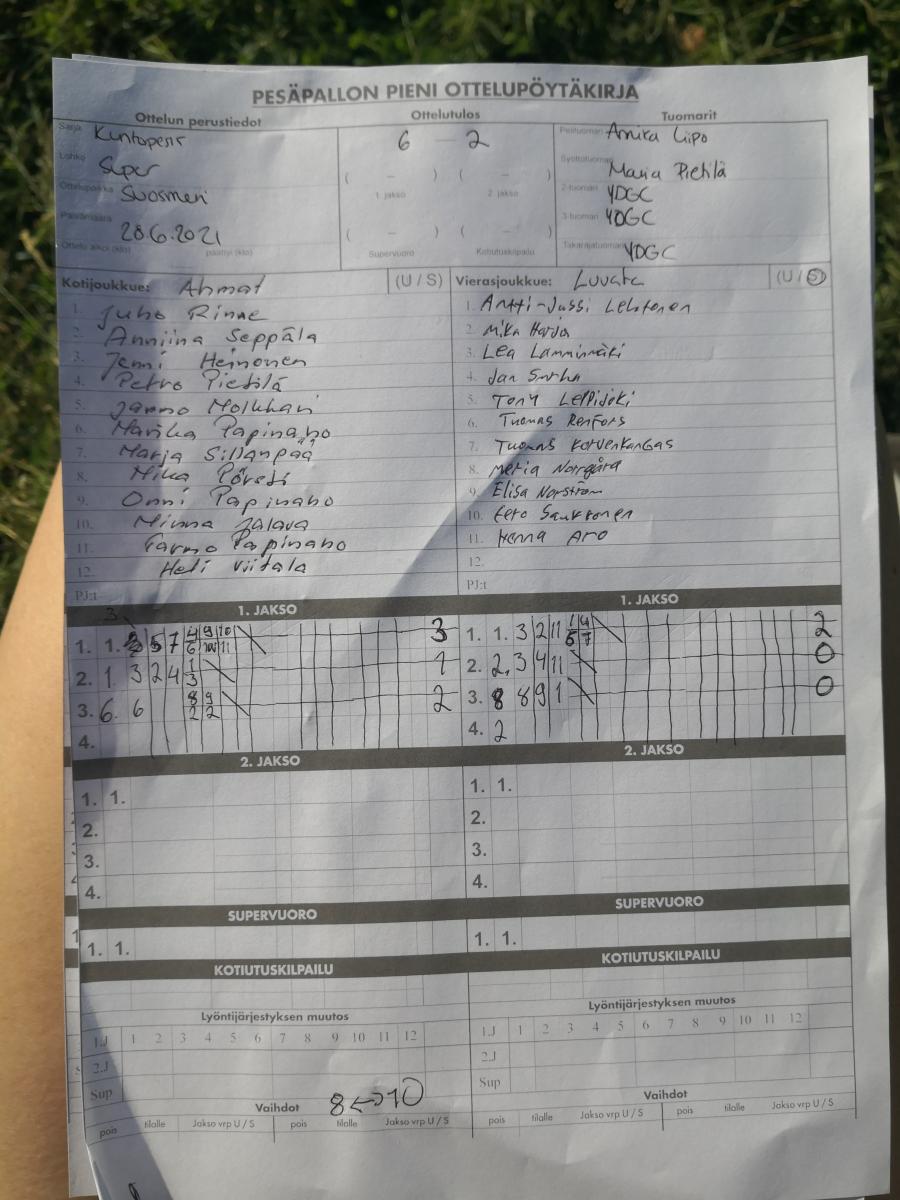 PESÄPALLON PIENI OTTELUPÖYTÄKIRJA
Ottelun perustiedot Ottelutulos Tuomarit
Sarja 6 – 2 Pelituomari Annika Lipo
Lohko Super Syöttötuomari Maria Pietilä
Ottelupaikka Suosmeri ( – ) ( – ) 2-tuomari YDGC
1. jakso 2. jakso
Päivämäärä 28.6.2021 3-tuomari YDGC
Ottelu alkoi (klo) päättyi (klo) ( – ) ( – ) Takarajatuomari YDGC
Supervuoro Kotiutuskilpailu
Kotijoukkue: Ahmat (U / S) Vierasjoukkue: Luvata (U / S)
1. Juho Rinne 1. Antti-Jussi Lehtonen
2. Anniina Seppälä 2. Mika Harja
3. Jenni Heinonen 3. Lea Lamminmäki
4. Petro Pietilä 4. Jan
5. Jarmo 5. Tony Leppijoki
6. Marika Papinaho 6. Tuomas Renfors
7. Marja Sillanpää 7. Tuomas Korvenkangas
8. Mika 8. Meria Norrgåra
9. Onni Papinaho 9. Elisa Norström
10. Minna Jalava 10. Eero Saukkonen
11. Tarmo Papinaho 11. Henna Aro
12. Heli Viitala 12.
PJ:t PJ:t
1. JAKSO 1. JAKSO
1. 1. 5 7 4/6 9 10 11 3 1. 1. 3 2 11 1/6 4/7 2
2. 1 3 2 4 1/3 1 2. 2. 3 4 11 0
3. 6. 6 8/2 9/2 2 3. 8 8 9 1 0
4. 4. 2
2. JAKSO 2. JAKSO
1. 1. 1. 1.
2. 2.
3. 3.
4. 4.
SUPERVUORO SUPERVUORO
1. 1. 1. 1.
KOTIUTUSKILPAILU KOTIUTUSKILPAILU
Lyöntijärjestyksen muutos Lyöntijärjestyksen muutos
1.J 1 2 3 4 5 6 7 8 9 10 11 12 1.J 1 2 3 4 5 6 7 8 9 10 11 12
2.J 2.J
Sup Sup
Vaihdot 8 ↔ 10 Vaihdot
pois tilalle Jakso vrp U / S pois tilalle Jakso vrp U / S pois tilalle Jakso vrp U / S pois tilalle Jakso vrp U / S